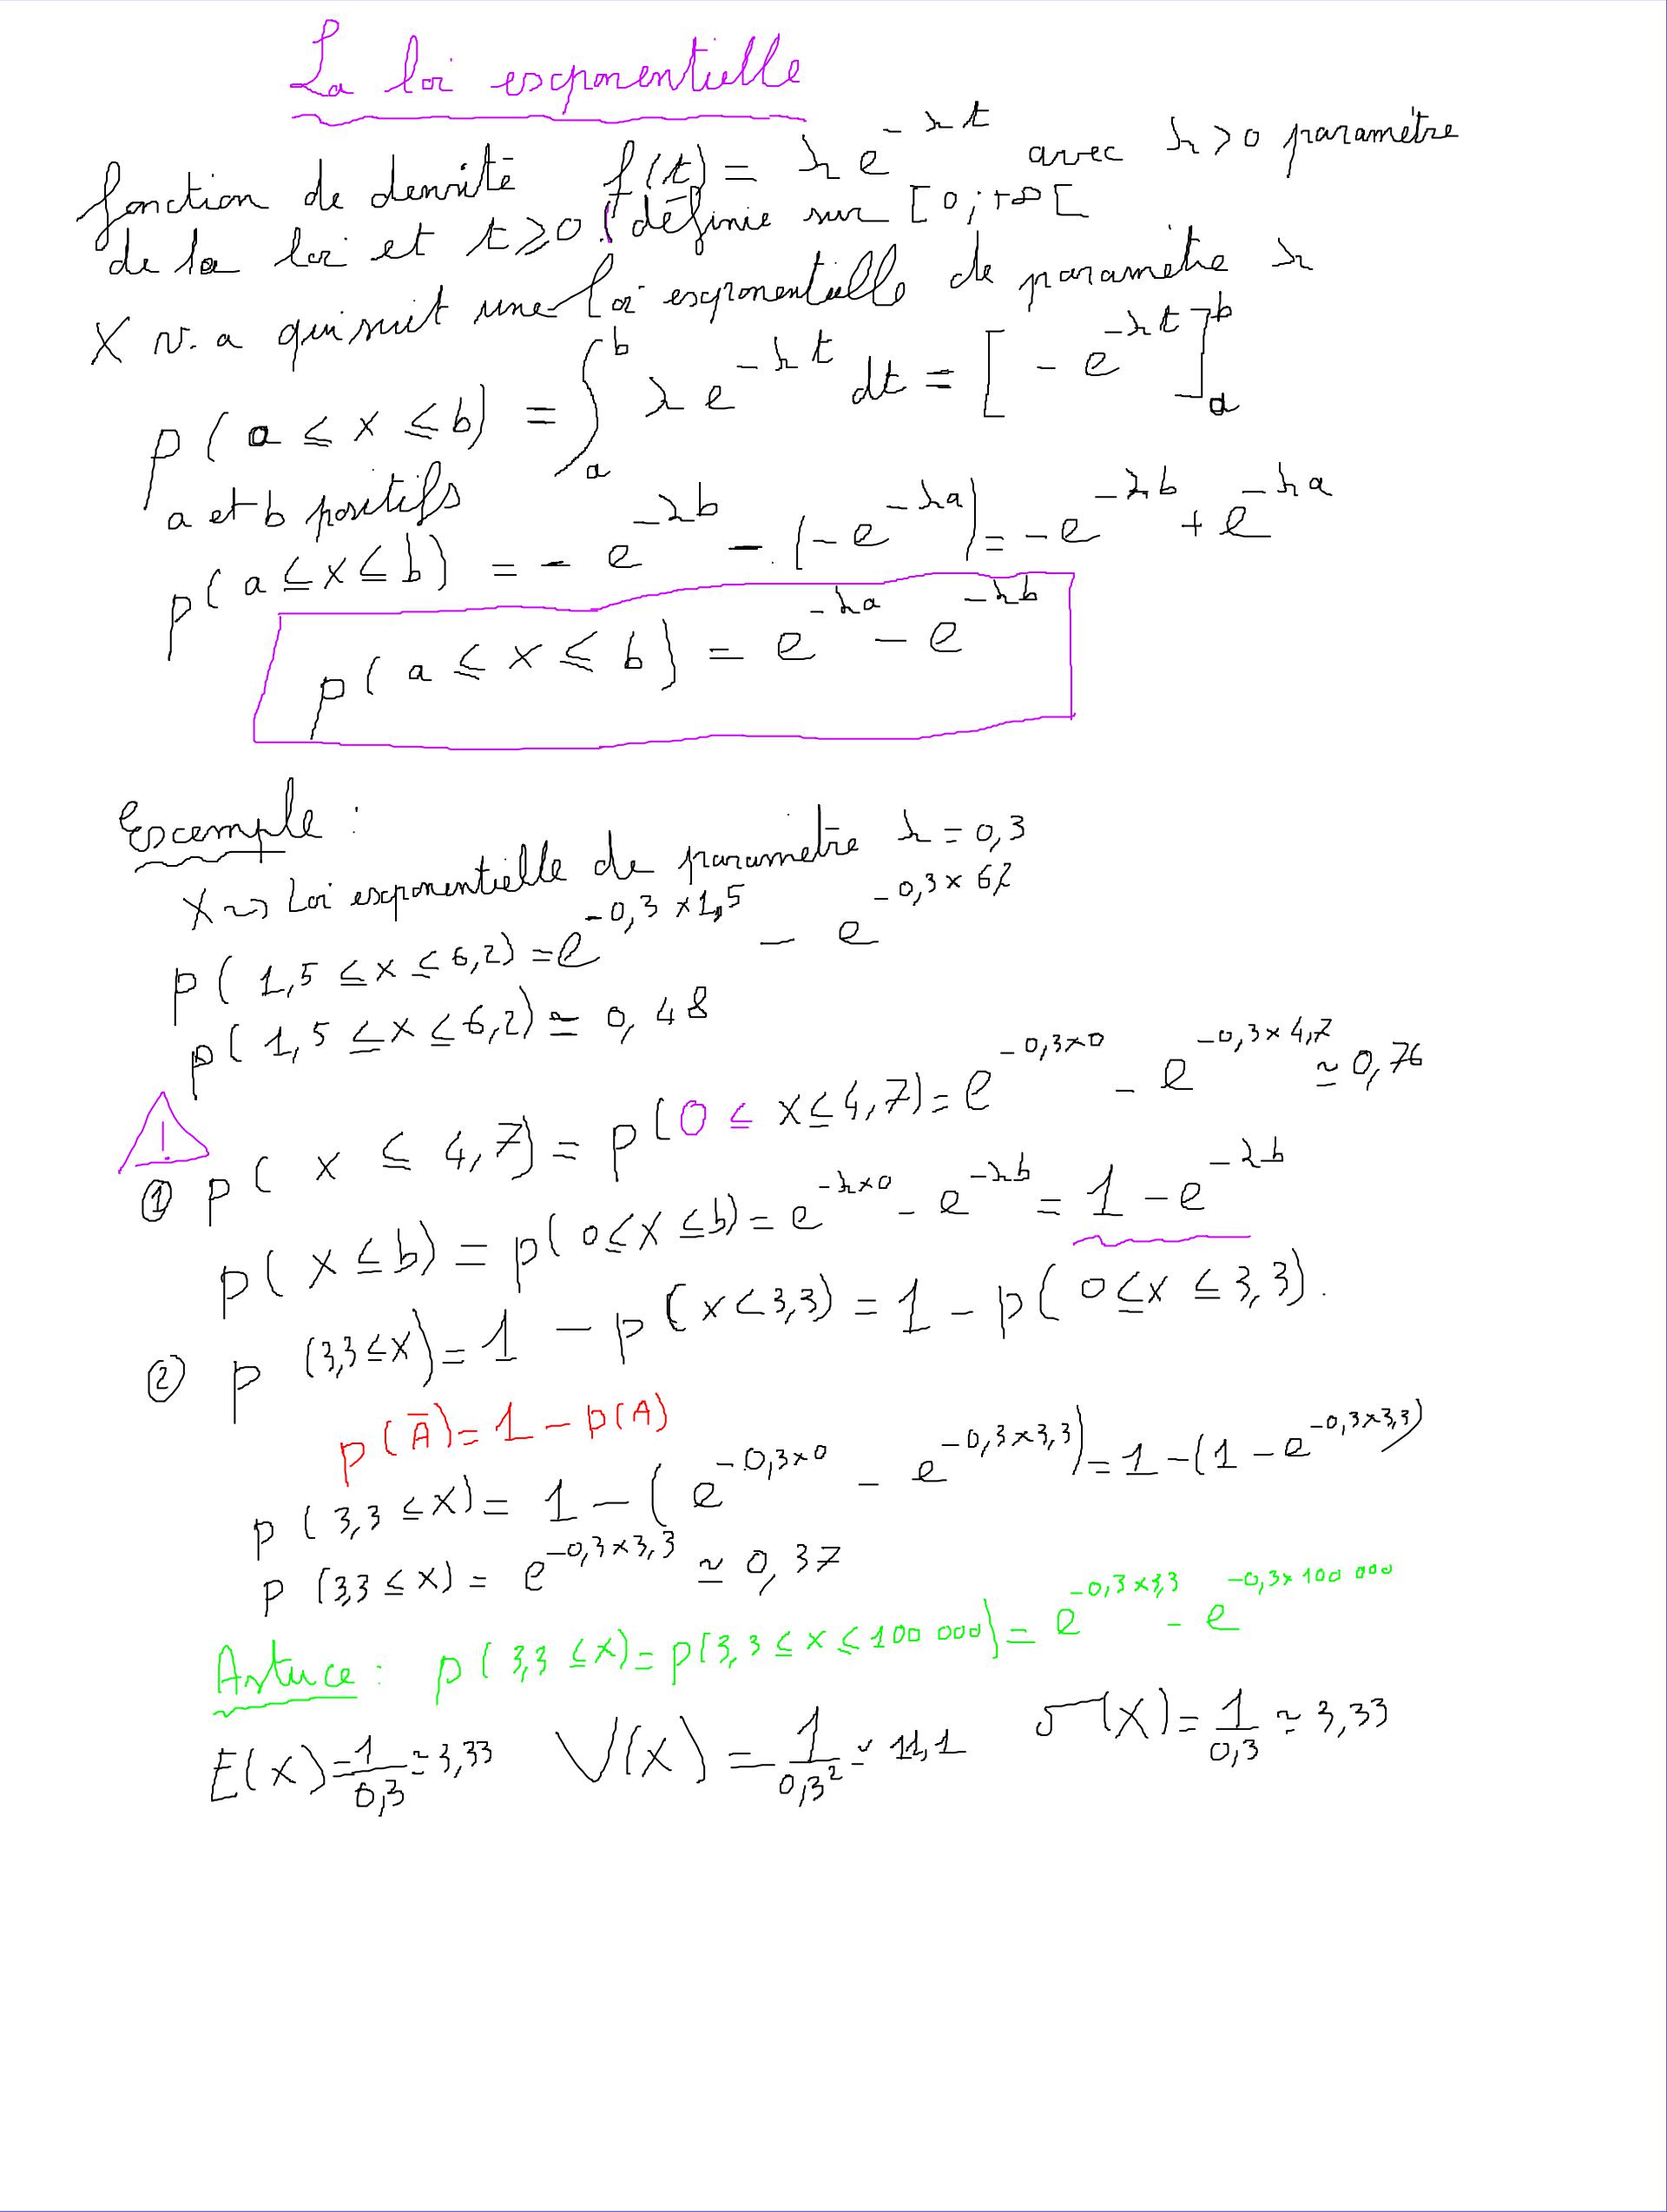 La loi exponentielle
fonction de densité f(t) = λe^{-λt} avec λ>0 paramètre
de la loi et t⩾0 ! définie sur [0;+∞[
X v.a qui suit une loi exponentielle de paramètre λ
p(a ≤ X ≤ b) = ∫_a^b λe^{-λt} dt = [-e^{-λt}]_a^b
a et b positifs
p(a ≤ X ≤ b) = -e^{-λb} - (-e^{-λa}) = -e^{-λb} + e^{-λa}
p(a ≤ X ≤ b) = e^{-λa} - e^{-λb}
Exemple :
X ⇝ Loi exponentielle de paramètre λ = 0,3
p(1,5 ≤ X ≤ 6,2) = e^{-0,3×1,5} - e^{-0,3×6,2}
p(1,5 ≤ X ≤ 6,2) ≃ 0,48
!
① p(X ≤ 4,7) = p(0 ≤ X ≤ 4,7) = e^{-0,3×0} - e^{-0,3×4,7} ≃ 0,76
p(X ≤ b) = p(0 ≤ X ≤ b) = e^{-λ×0} - e^{-λb} = 1 - e^{-λb}
② p(3,3 ≤ X) = 1 - p(X < 3,3) = 1 - p(0 ≤ X ≤ 3,3).
p(Ā) = 1 - p(A)
p(3,3 ≤ X) = 1 - (e^{-0,3×0} - e^{-0,3×3,3}) = 1 - (1 - e^{-0,3×3,3})
p(3,3 ≤ X) = e^{-0,3×3,3} ≃ 0,37
Astuce : p(3,3 ≤ X) = p(3,3 ≤ X ≤ 100 000) = e^{-0,3×3,3} - e^{-0,3×100 000}
E(X) = 1/0,3 ≃ 3,33 V(X) = 1/0,3² ≃ 11,1 σ(X) = 1/0,3 ≃ 3,33